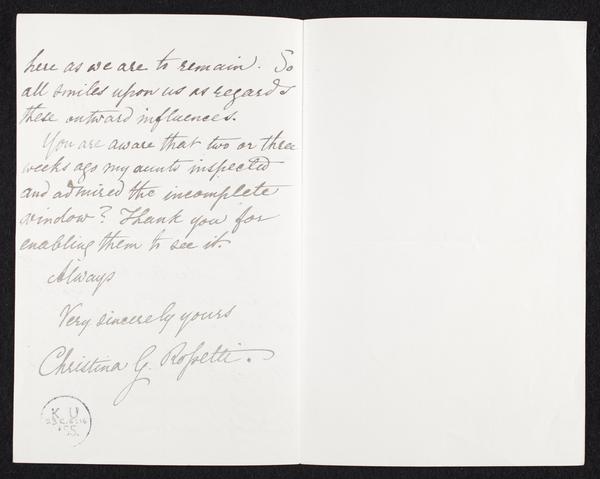 here as we are to remain. So
all smiles upon us as regards
these outward influences.
You are aware that two or three
weeks ago my aunts inspected
and admired the incomplete
window? Thank you for
enabling them to see it.
Always
Very sincerely yours
Christina G. Rossetti.
K U